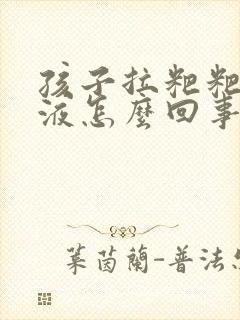 孩子拉粑粑
液怎麼回事
萊茵蘭-普法